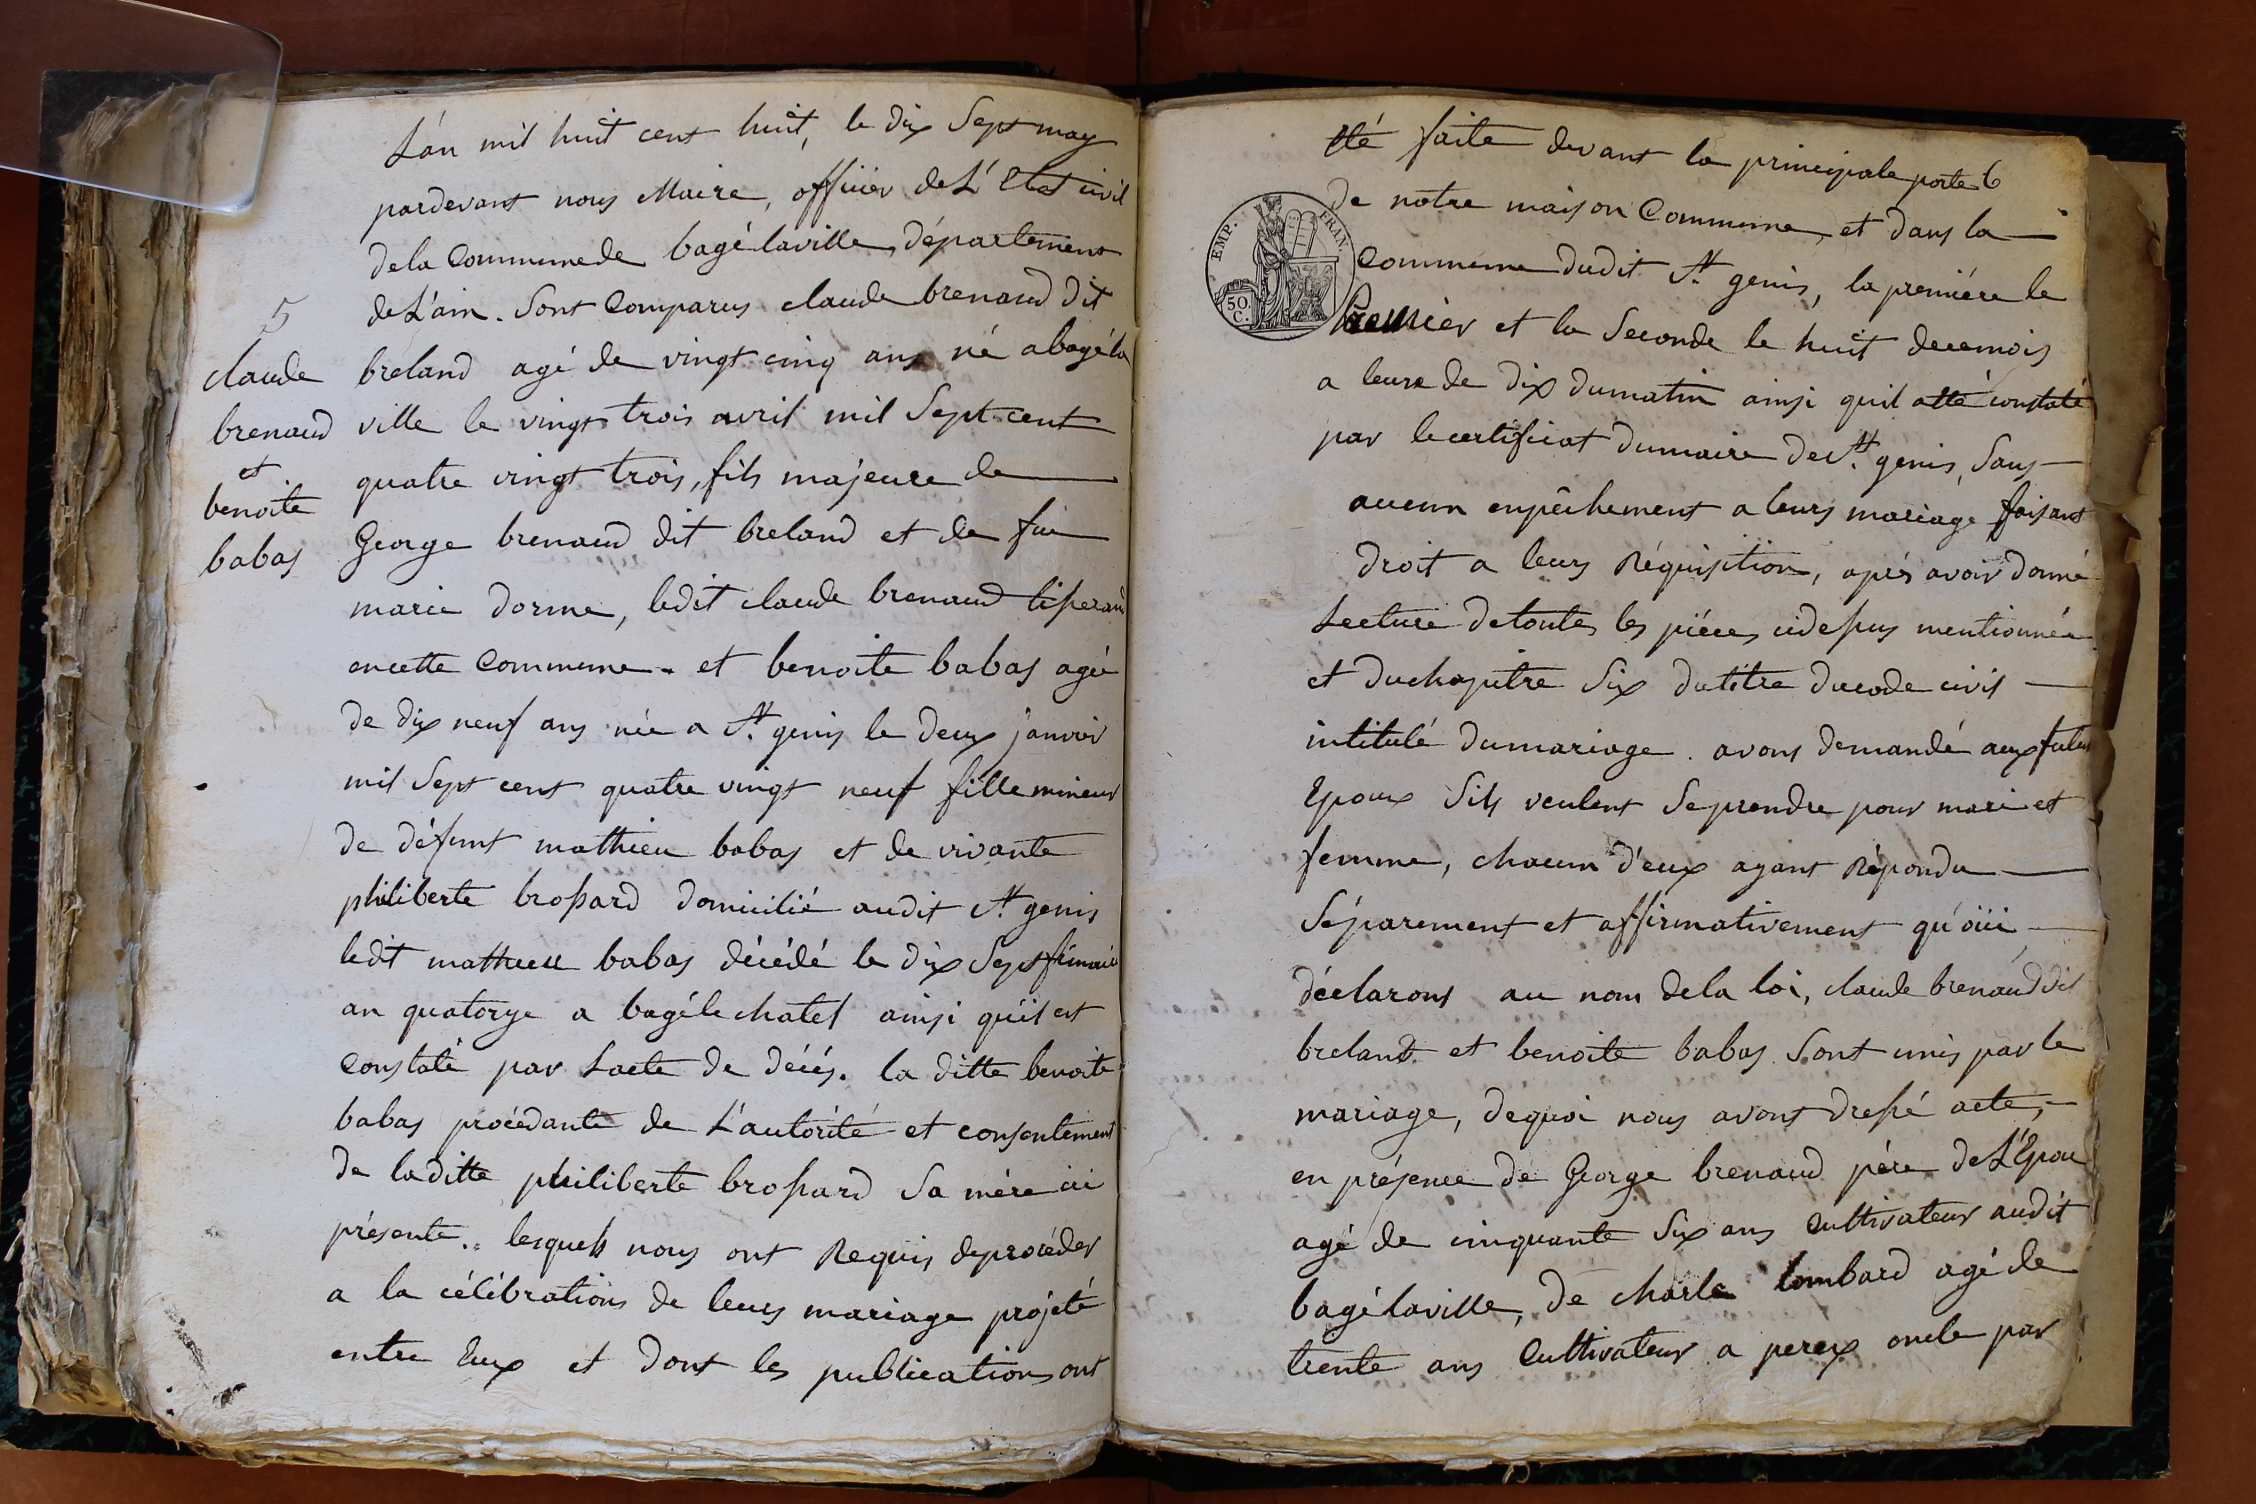 L'an mil huit cent huit, le dix Sept may
pardevant nous Maire, officier de L'Etat civil
dela Commune de bagé laville, département
de L'ain. Sont Comparus claude brenaud dit
5
claude
brenaud
et
benoite
babas
breland agé de vingt cinq ans né a bagé la
ville le vingt trois avril mil Sept cent
quatre vingt trois, fils majeure de
George brenaud dit breland et de fue
marie dorme, ledit claude brenaud tisserand
encette Commune. et benoite babas agée
de dix neuf ans née a St. genis le deux janvier
mil Sept cent quatre vingt neuf fille mineur
de défunt mathieu babas et de vivante
philiberte brossard domicilié audit St. genis
ledit mathieu babas décédé le dix Sept frimaire
an quatorze a bagé le chatel ainsi qu'il est
Constaté par Lacte de décés. la ditte benoite
babas procédante de L'autorité et consentement
de laditte philiberte brossard Sa mére ici
présente.. lesquels nous ont Requis deprocéder
a la célébrations de leurs mariage projeté
entre Eux et dont les publications ont
été faite devant la principale porte 6
de notre maison Commune, et dans la
EMP. FRAN.
50 C.
Commune dudit St. genis, la premiére le
Premier et la Seconde le huit decemois
a leure de dix dumatin ainsi quil atté constaté
par lecertificat dumaire de St. genis, Sans
aucun enpêchement a leurs mariage faisant
droit a leurs Réquisition, aprés avoir donné
Lecture detoutes les piéces cidessus mentionnée
et duchapitre Six dutitre ducode civil
intitulé dumariage. avons demandé aux futurs
Epoux Sils veulent Seprendre pour mari et
femme, chacun d'eux ayant Répondu
Séparement et affirmativement qu'oüi
déclarons au nom dela loi, claude brenaud dit
breland et benoite babas Sont unis par le
mariage, dequoi nous avons dressé acte,
en présence de George brenaud pére de L'Epou
agé de cinquante Six ans Cultivateur audit
bagé laville, de charle lombard agé de
trente ans Cultivateur a perex oncle par